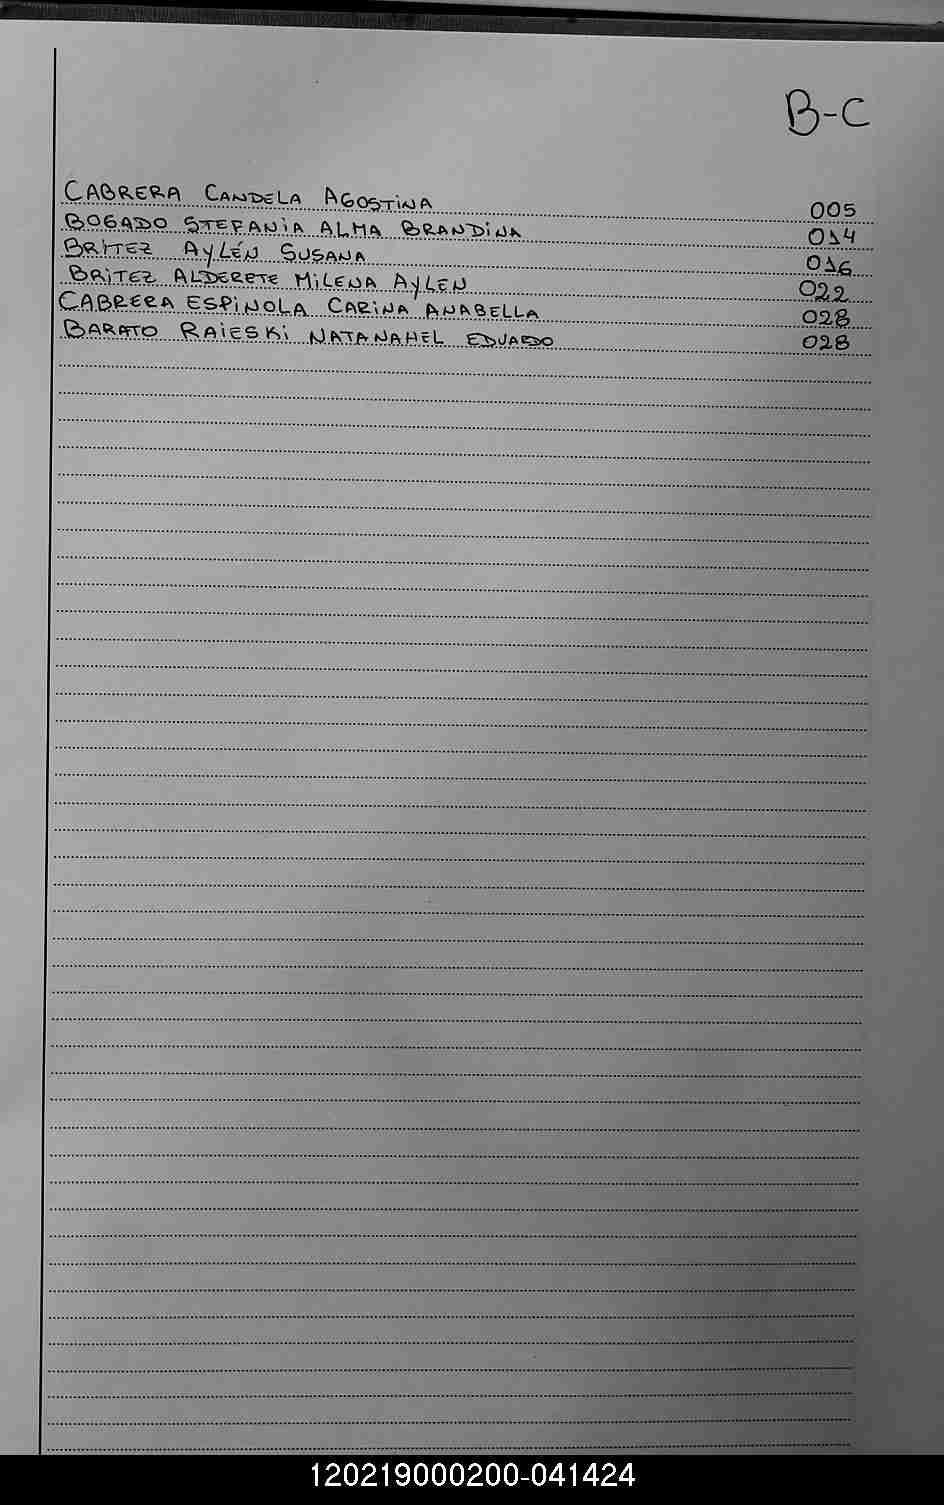 B-C
CABRERA CANDELA AGOSTINA 005
BOGADO STEFANIA ALMA BRANDINA 014
BRITEZ AYLÉN SUSANA 016
BRITEZ ALDERETE MILENA AYLEN 022
CABRERA ESPINOLA CARINA ANABELLA 028
BARATO RAIESKI NATANAHEL EDUARDO 028
120219000200-041424